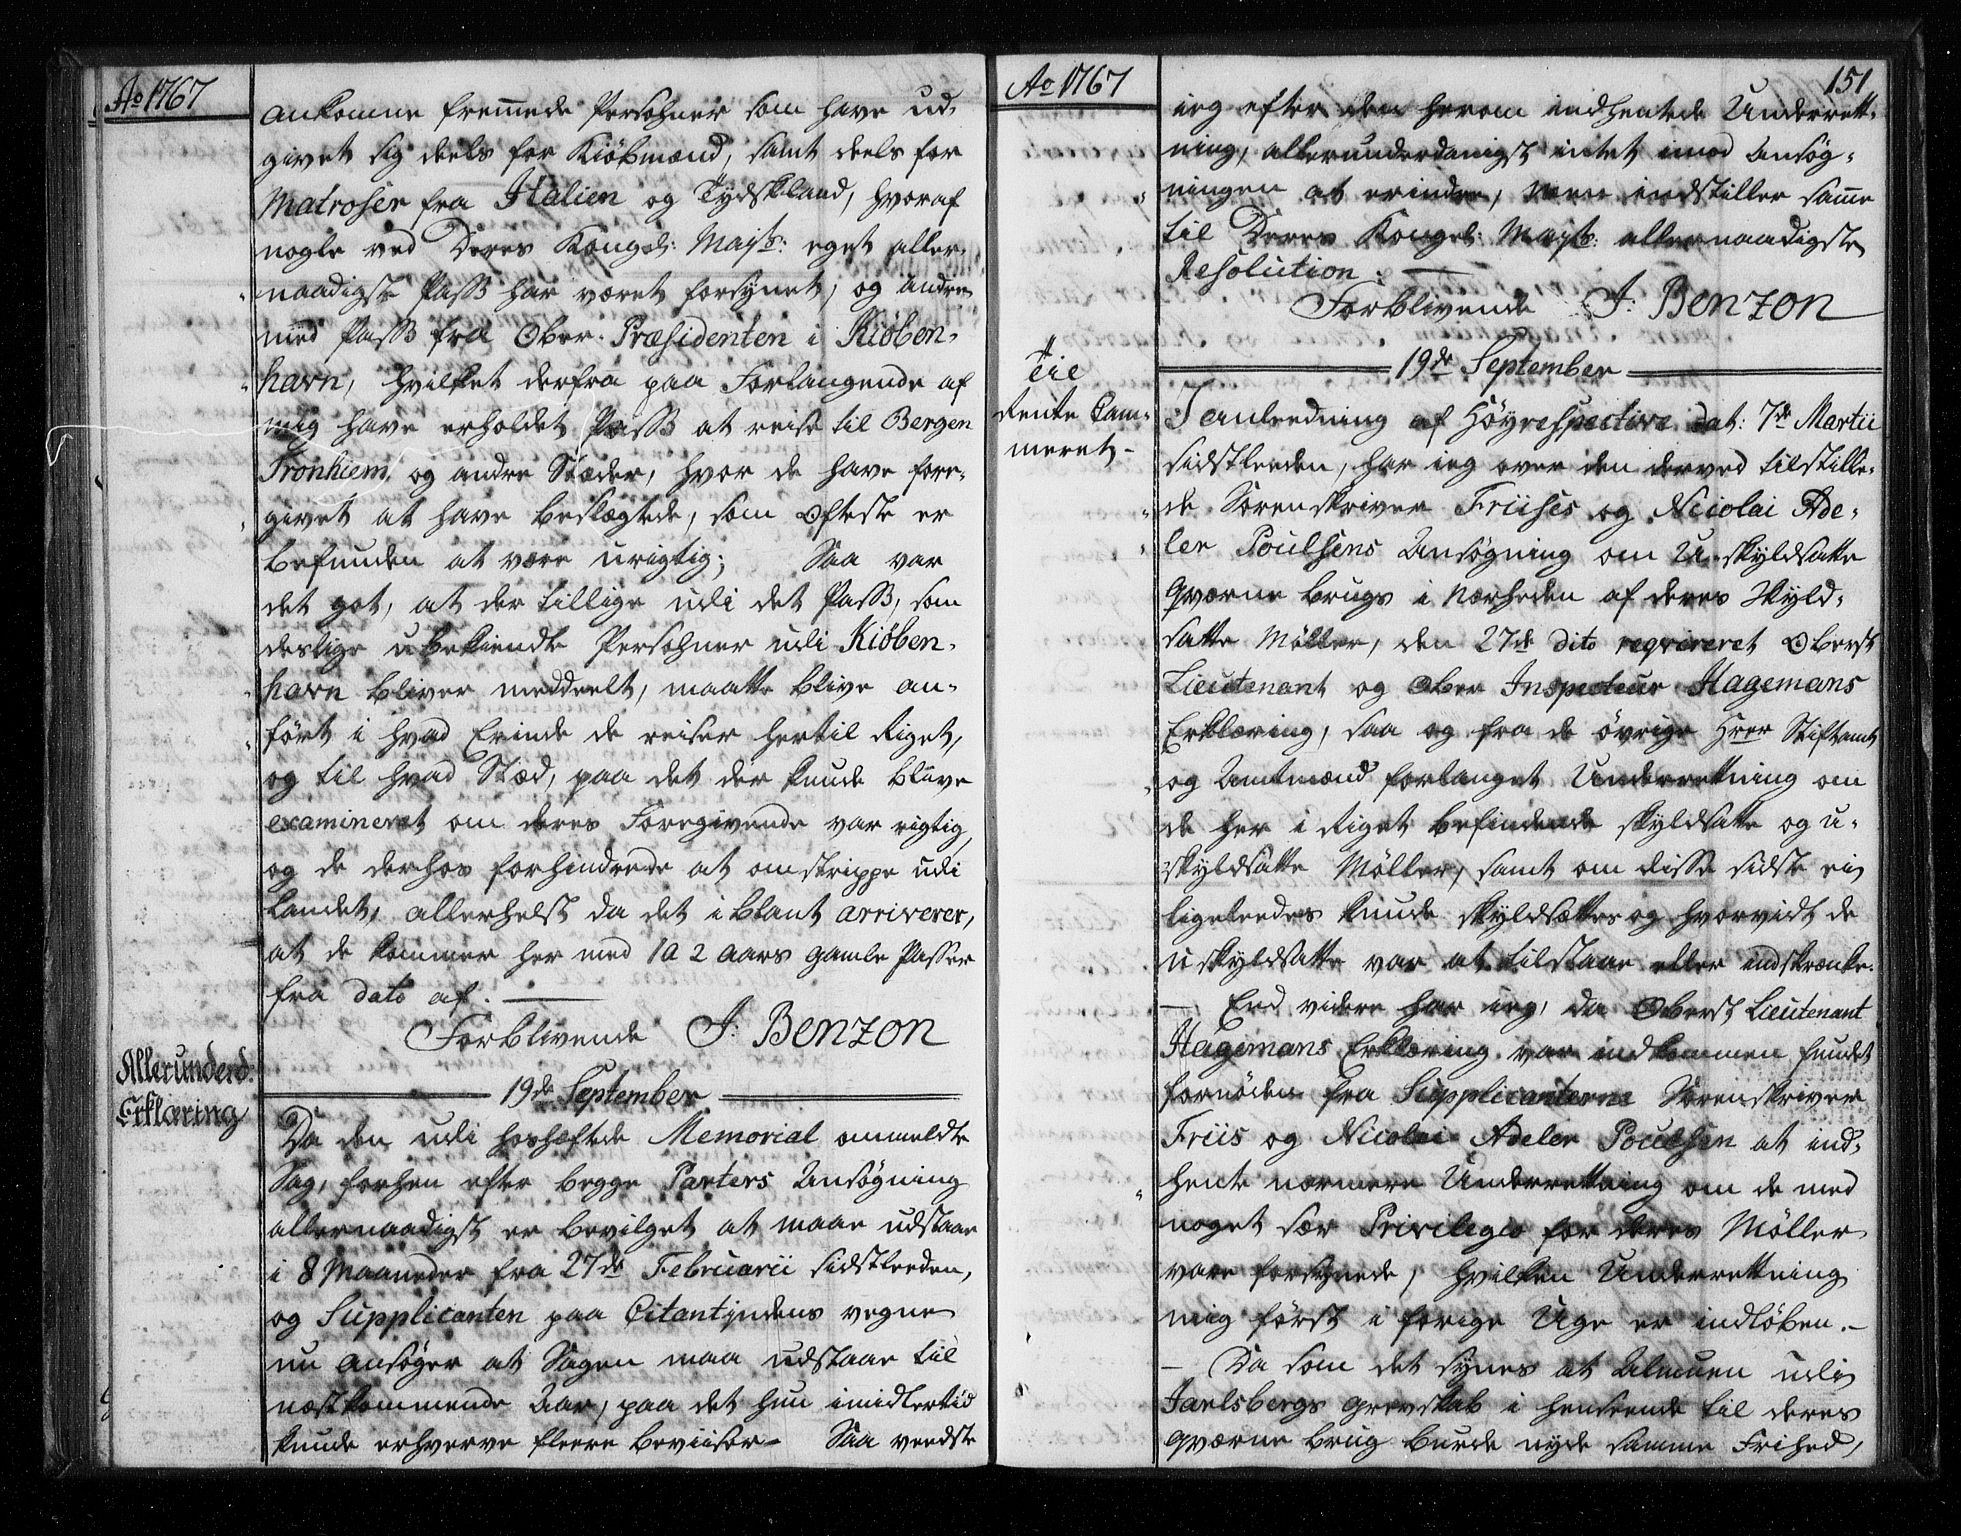 Ao 1767
ankomne fremmede Persohner som have ud-
givet sig deels for Kiøbmænd, samt deels for
Matroser fra Italien og Tydskland, hvoraf
nogle ved Deres Kongel: Mayts: eget aller-
naadigste Pass har været forsynet, og andre
med Pass fra Ober-Præsidenten i Kiøben-
havn, hvilket derfra paa Forlangende af
mig have erholdet Pass at reise til Bergen
Tronhiem, og andre Stæder, hvor de have fore-
givet at have Beslægtede, som ofteste er
befunden at være urigtig; Saa var
det got, at der tillige udi det Pass, som
deslige ubekiendte Persohner udi Kiøben-
havn bliver meddeelt, maatte blive an-
ført i hvad Erinde de reiser hertil Riget,
og til hvad Stæd, paa det der kunde blive
examineret om deres Foregivende var rigtig,
og de derhos forhindrede at omstrippe udi
Landet, allerhelst da det iblant arriverer,
at de kommer her med 1 a 2 aars gamle Passer
fra dato af.
Forblivende J: Benzon
Allerunderd:
Erklæring
19de September
Da den udi hoshæftede Memorial ommeldte
Sag, forhen efter begge Parters Ansøgning
allernaadigst er bevilget at maae udstaae
i 8 Maaneder fra 27de Februarii sidstleeden,
og Supplicanten paa Citantindens vegne
nu ansøger at Sagen maa udstaae til
næstkommende Aar, paa det hun imidlertid
kunde erhverve fleere Beviiser - Saa veedste
Ao 1767
151
ieg efter den herom indhentede Underrett-
ning, allerunderdanigst intet imod Ansøg-
ningen at erindre, men indstiller samme
til Deres Kongel: Mayts: allernaadigste
Resolution.
Forblivende J: Benzon
19de September
Til
Rente Cam-
meret-
I anleedning af Høyrespective dat: 7de Martii
sidstleeden, har ieg over den derved tilstille-
de Sorenskriver Friises og Nicolai Ade-
ler Poulsens Ansøgning om U-skyldsatte
Qværne brugs i Nærheden af deres Skyld-
satte Møller, den 27de dito reqvireret Oberst
Lieutenant og Ober Inspecteur Hagemans
Erklæring, saa og fra de øvrige Hrer Stiftamt
og Amtmænd forlanget Underrettning om
de her i Riget befindende skyldsatte og u-
skyldsatte Møller, samt om disse sidste ei
ligeleedes kunde skyldsættes og hvorvidt de
uskyldsatte var at tilstaae eller indskrænke.
— End videre har ieg, da Oberst Lieutenant
Hagemans Erklæring var indkommen fundet
fornøden fra Supplicanterne Sorenskriver
Friis og Nicolai Adeler Poulsen at ind-
hente nærmere Underrettning om de med
noget sær Privilegio for deres Møller
vare forsynede, hvilken Underrettning
mig først i forige Uge er indløben.-
— Da som det synes at Almuen udi
Jarlsbergs Grevskab i henseende til deres
qværne brug burde nyde samme Frihed,